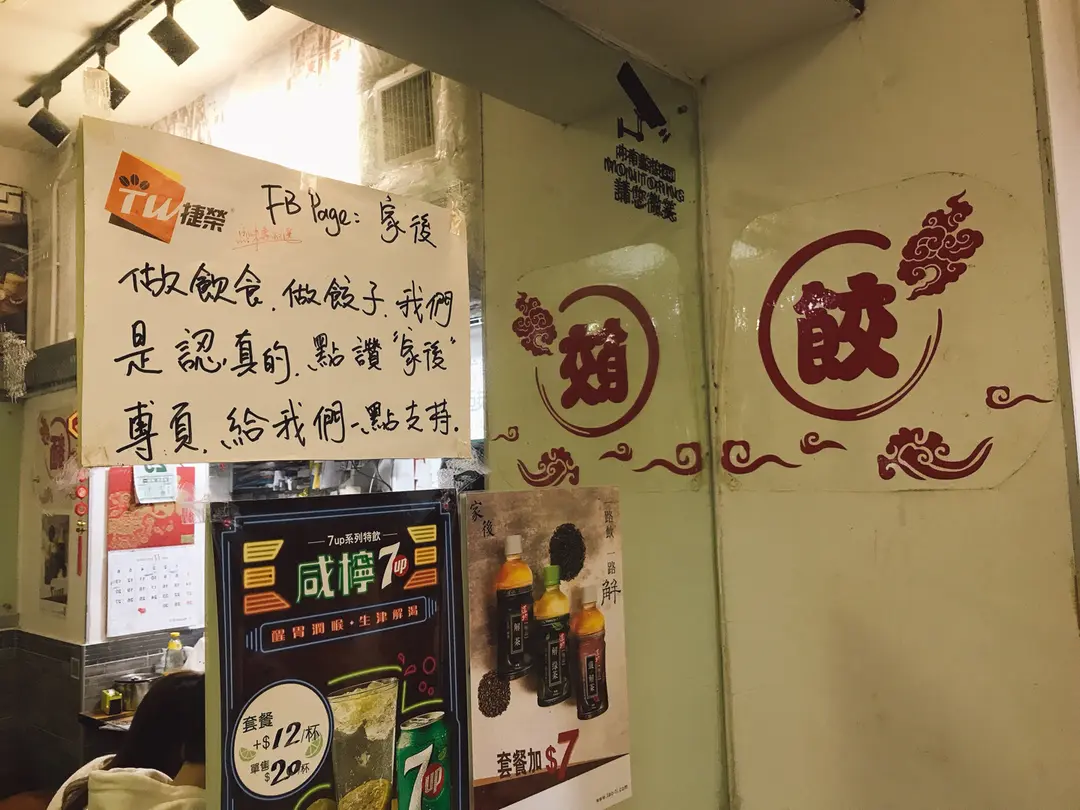 TW捷榮
FB Page: 家後
做飲食、做餃子、我們
是認真的、點讚"家後"
專頁、給我們一點支持.
MONITORING
請您微笑
餃
7up系列特飲
咸檸7up
醒胃潤喉・生津解渴
套餐
+$12/杯
單售
$20/杯
7up
家後
一路飲一路解
解茶
解綠茶
套餐加$7
www.tao-ti.com